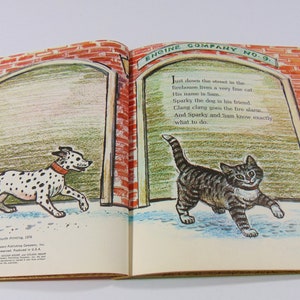 ENGINE COMPANY NO. 9
Just down the street in the
firehouse lives a very fine cat.
His name is Sam.
Sparky the dog is his friend.
Clang clang goes the fire alarm.
And Sparky and Sam know exactly
what to do.
Printing, 1976